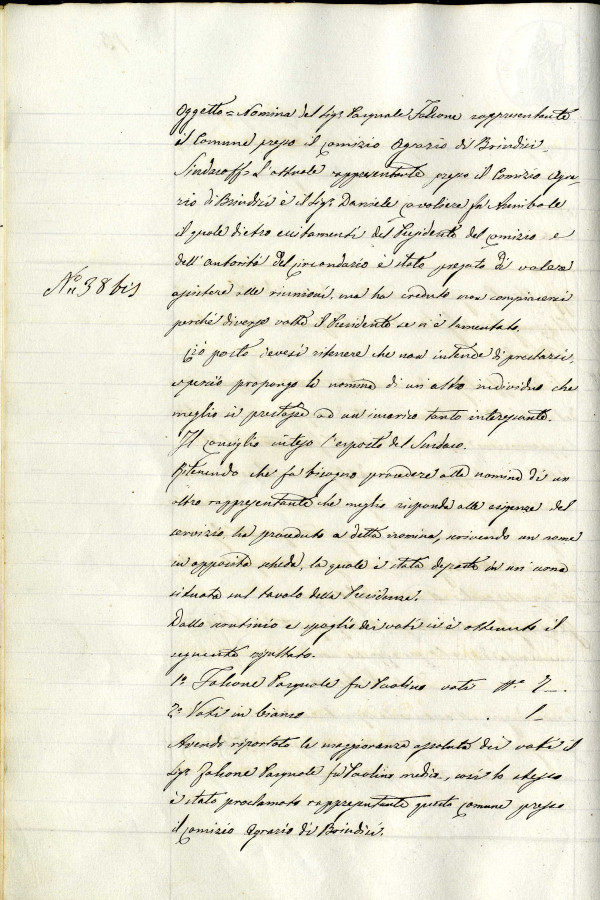 Oggetto = Nomina del Sigr Pasquale Falcone rappresentante
il Comune presso il Comizio Agrario di Brindisi.
Sindaco ff = L'attuale rappresentante presso il Comizio Agra-
rio di Brindisi è il Sigr Daniele Cavaliere fu Annibale
il quale dietro eccitamenti del Presidente del Comizio e
dell'autorità del Circondario è stato pregato di volere
Nº 38 bis
assistere alle riunioni, ma ha creduto non compiacersi
perché diverse volte il Presidente se n'è lamentato.
Ciò posto devesi ritenere che non intende di prestarsi,
e perciò propongo la nomina di un altro individuo che
meglio si prestasse ad un incarico tanto interessante.
Il Consiglio inteso l'esposto del Sindaco.
Ritenendo che fa bisogno procedere alla nomina di un
altro rappresentante che meglio risponda alle esigenze del
servizio, ha proceduto a detta nomina, scrivendo un nome
in apposita scheda, la quale è stata deposta in un'urna
situata sul tavolo della Presidenza.
Dallo scrutinio e spoglio dei voti si è ottenuto il
seguente risultato.
1º Falcone Pasquale fu Paolino voti Nº 7 _.
2º Voti in bianco . 1 _
Avendo riportato la maggioranza assoluta dei voti il
Sigr Falcone Pasquale fu Paolino medico, così lo stesso
è stato proclamato rappresentante questo Comune presso
il Comizio Agrario di Brindisi.